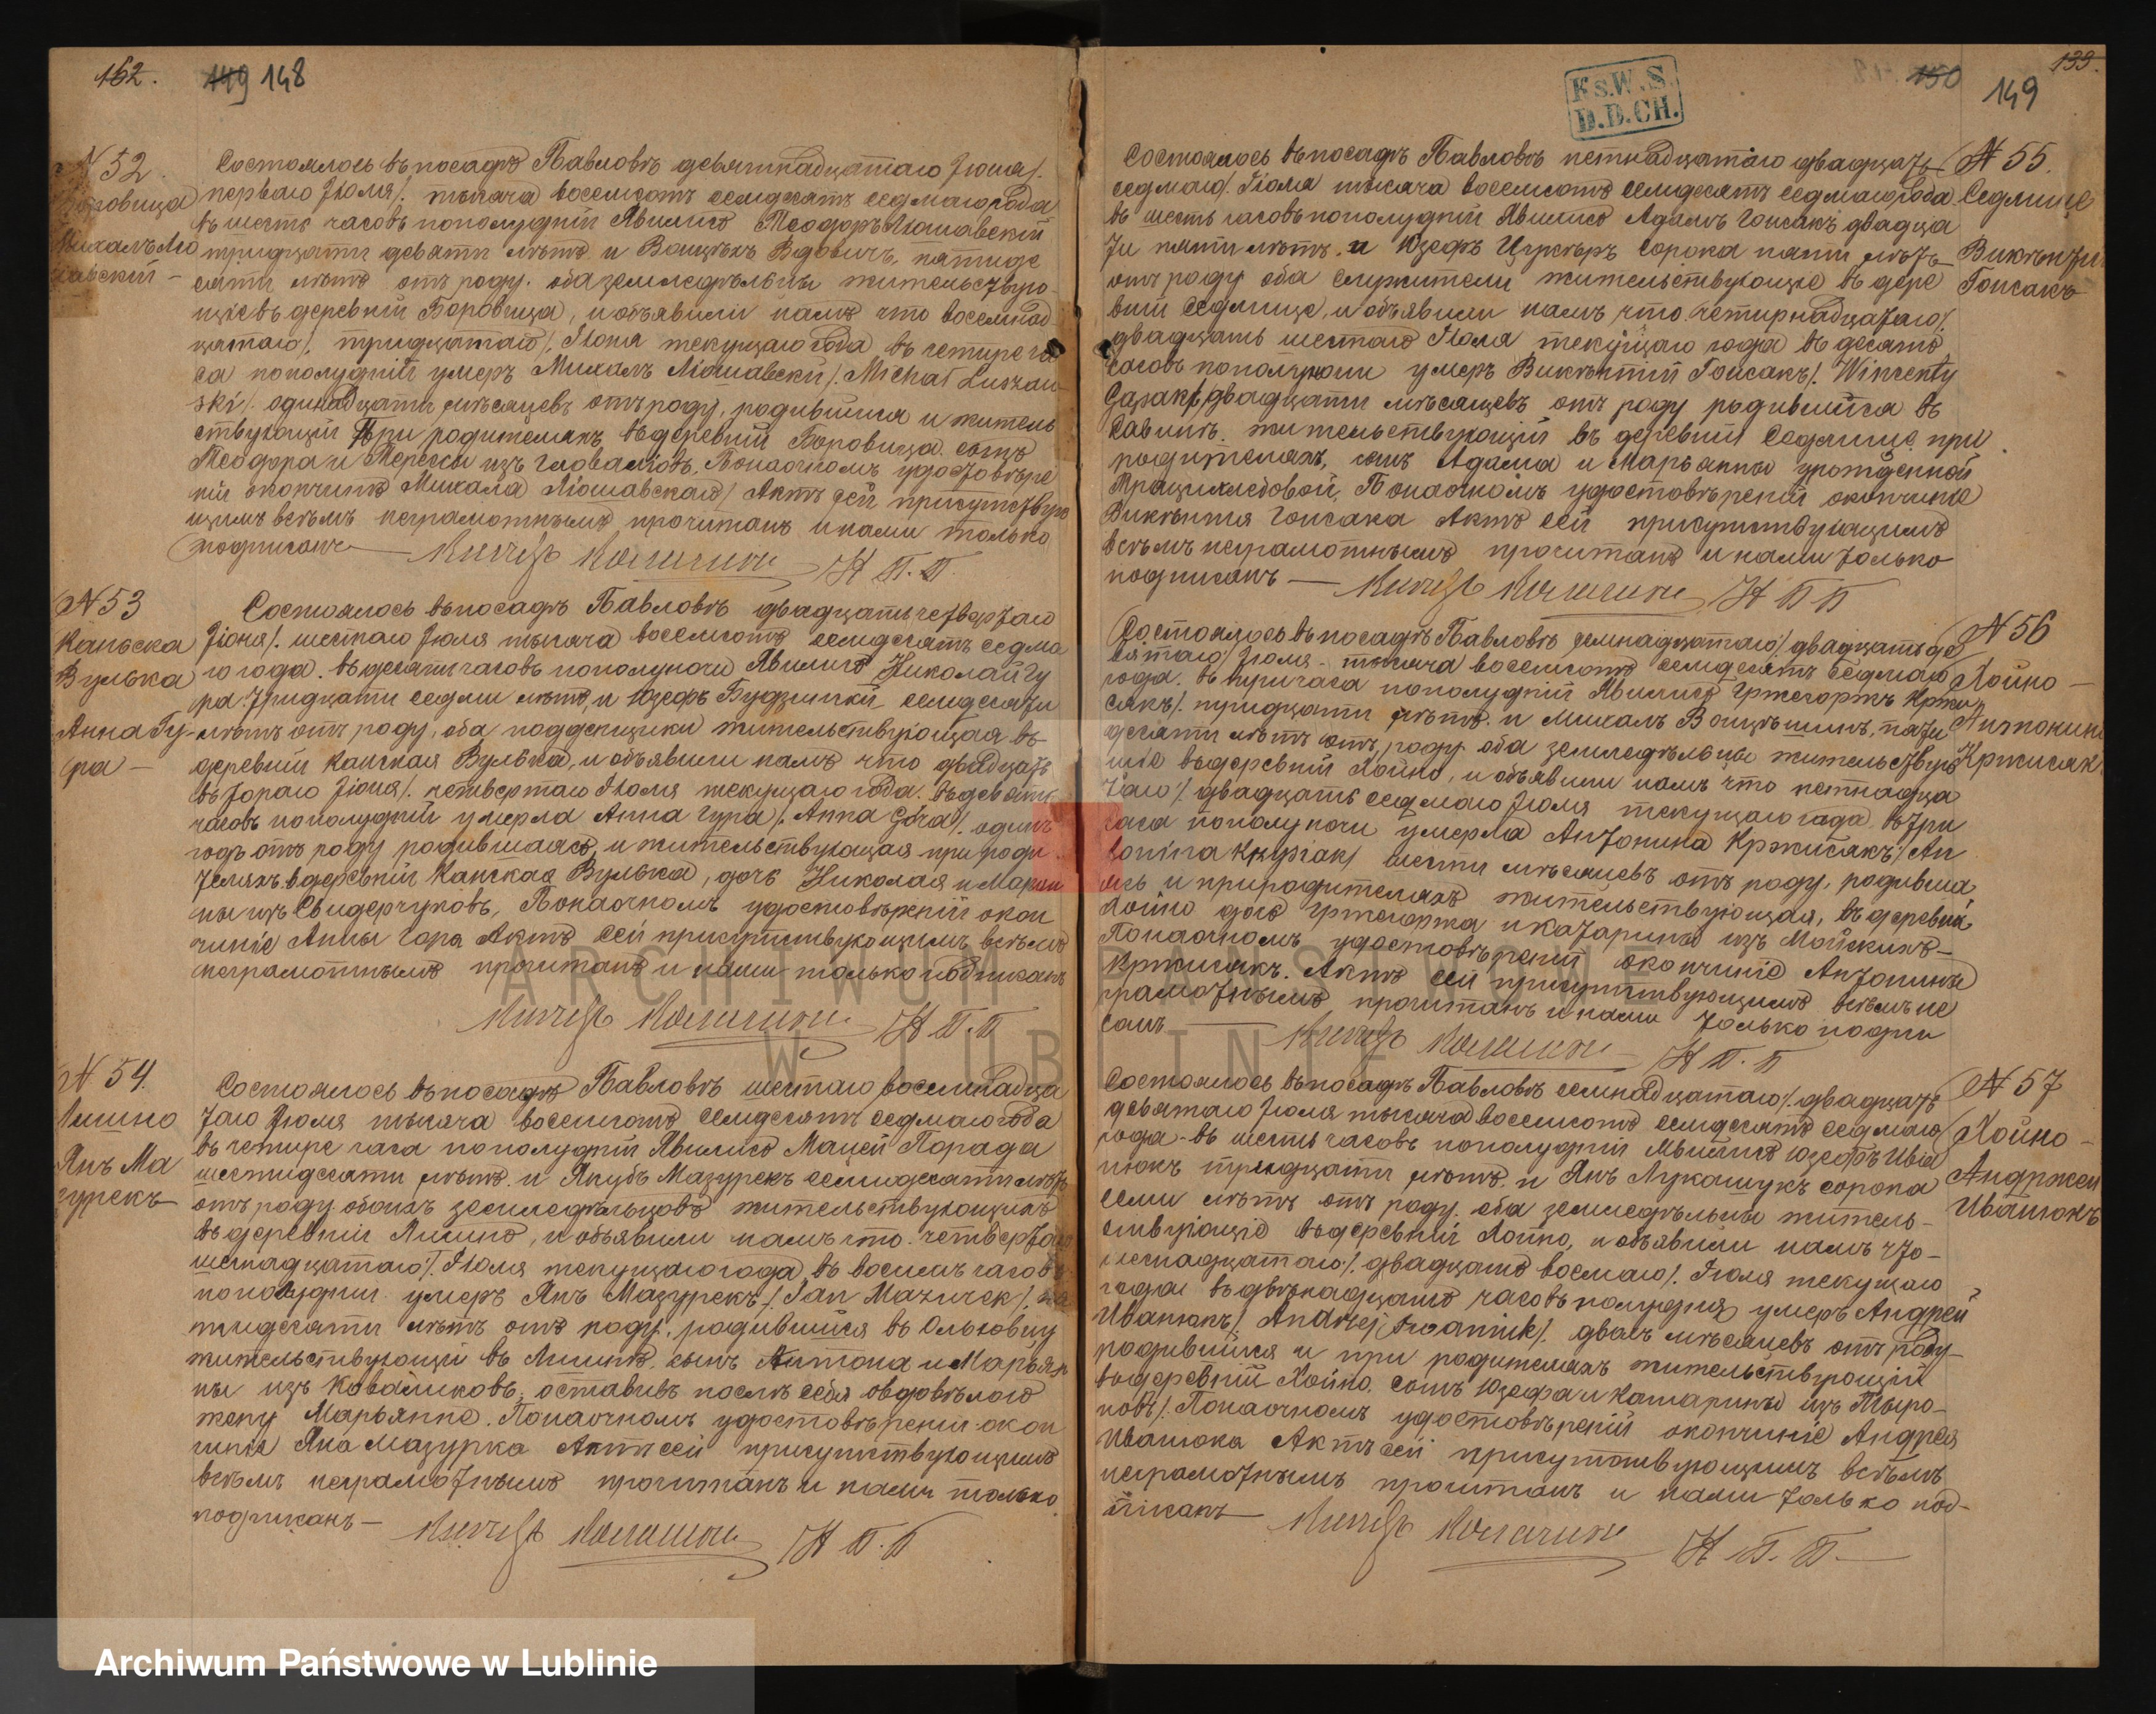 152. 149 148
N 52.
Боровица
Михалъ Лю
шавскiй –
Состоялось въ посадѣ Павловѣ девятнадцатаго Iюня/.
перваго Iюля/. тысяча восемсотъ семдесятъ седмаго года
въ шесть часовъ пополуднiй Явились Теодоръ Люшавскiй
тридцати девяти лѣтъ и Войцѣхъ Вдовичъ, пятиде
сяти лѣтъ отъ роду. оба земледѣльцы жительствую
щiе въ деревнiй Боровица, и объявили намъ что восемнад
цатаго/. тридцатаго/. Iюня текущаго года въ четире ча
са пополуднiй умеръ Михалъ Люшавскiй/. Michał Luszaw
ski/. одинадцати мѣсяцевъ отъ роду, родившiйся и житель
ствующiй при родителяхъ въ деревнiй Боровица сынъ
Теодора и Терессы изъ Поналочномъ удостовѣре
нiй окончинѣ Михала Люшавскаго/ Актъ сей присутствую
щимъ всѣмъ неграмотнымъ прочитанъ и нами только
подписанъ — Н П. П.
N 53
Каньска
Вулька
Анна Гу-
ра —
Состоялось въ посадѣ Павловѣ двадцать четвертаго
Iюня/. шестаго Iюля тысяча восемсотъ семдесятъ седма
го года. въ десять часовъ пополуночи Явились Николай Гу
ра тридцати седми лѣтъ, и Юзефъ семдесяти
лѣтъ отъ роду, оба поденщики жительствующая въ
деревнiй Канская Вулька, и объявили намъ что двадцать
втораго Iюня/. четвертаго Iюля текущаго года. въ девять
часовъ пополуднiй умерла Анна Гура/. Anna Góra/. одинъ
годъ отъ роду родившаясь, и жительствующая при роди
теляхъ въ деревнiй Канская Вулька, дочь Николая и Марiян
ны изъ Свидерчуковъ, Поналочномъ удостовѣренiй окон
чинiе Анны Гора Актъ сей присутствующимъ всѣмъ
неграмотнымъ прочитанъ и нами только подписанъ
Н П. П
N 54.
Лишно
Янъ Ма
зурекъ —
Состоялось въ посадѣ Павловѣ шестаго восемнадца
таго Iюля тысяча восемсотъ семдесятъ седмаго года
въ четире часа пополуднiй Явились Мацей Порада
шестидесяти лѣтъ. и Якубъ Мазурекъ семидесяти лѣтъ
отъ роду обоихъ земледѣльцовъ жительствующихъ
въ деревнiй Лишно, и объявили намъ что четвертаго
шестнадцатаго/. Iюля текущаго года, въ восемъ часовъ
пополуднiи умеръ Янъ Мазурекъ/. Jan Mazurek/.
тидесяти лѣтъ отъ роду, родившiйся въ Ольховцу
жительствующiй въ Лишнѣ. сынъ Антона и Марьян
ны изъ Ковальиковъ, оставивъ послѣ себя овдовѣлою
жену Марьянне. Поналочномъ удостовѣренiй окон
чинiе Яна Мазурка Актъ сей присутствующимъ
всѣмъ неграмотнымъ прочитанъ и нами только
подписанъ — Н П. П
Ks.W.S.
D.D.CH.
150 149 153.
N 55.
Седлище
Викѣнтiй
Гонсакъ
Состоялось въ посадѣ Павловѣ петнадцатаго двадцать
седмаго/. Iюля тысяча восемсотъ семдесятъ седмаго года
въ шесть часовъ пополуднiй Явились Адамъ Гонсакъ двадца
ти пяти лѣтъ. и Юзефъ сорока пяти лѣтъ
отъ роду оба служители жительствующiе въ дере
внiй Седлище, и объявили намъ что. четирнадцатаго/.
двадцать шестаго Iюля текущаго года въ десять
часовъ пополуночи умеръ Викѣнтiй Гонсакъ/. Wincenty
двадцати мѣсяцевъ отъ роду родившiйся въ
Савинѣ. жительствующiй въ деревнiй Седлище при
родителяхъ, сынъ Адама и Марьянны урожденной
Поналочномъ удостовѣренiй окончинѣ
Викѣнтiя Гонсака Актъ сей присутствующимъ
всѣмъ неграмотнымъ прочитанъ и нами только
подписанъ — Н П П
N 56
Хойно —
Антонина
Кржисякъ
Состоялось въ посадѣ Павловѣ семнадцатаго/. двадцать де
вятаго/. Iюля – тысяча восемсотъ семдесятъ седмаго
года. въ три часа пополуднiй Явились Гржегоржъ Кржи
сякъ/. тридцати лѣтъ. и Михалъ пяти
десяти лѣтъ отъ роду. оба земледѣльцы жительствую
щiе въ деревнiй Хойно, и объявили намъ что петнадца
таго/. двадцать седмаго Iюля текущаго года. въ три
часа пополуночи умерла Антонина Кржисякъ/. An
tonina Krzysiak/ шести мѣсяцевъ отъ роду, родивша
ясь и при родителяхъ жительствующая, въ деревнiй
Хойно дочь Гржегоржа и Катарины изъ
Поналочномъ удостовѣренiй окончинiе Антонины
Кржисякъ. Актъ сей присутствующимъ всѣмъ не
грамотнымъ прочитанъ и нами только подпи
санъ — Н П. П
N 57
Хойно –
Андржей
Иванюкъ
Состоялось въ посадѣ Павловѣ семнадцатаго/. двадцать
девятаго Iюля тысяча восемсотъ семдесятъ седмаго
года – въ шесть часовъ пополуднiй Явились Юзефъ Ива
нюкъ тридцати лѣтъ. и Янъ Лукашукъ сорока
семи лѣтъ отъ роду. оба земледѣльцы житель-
ствующiе въ деревнiй Хойно, и объявили намъ что –
шестнадцатаго/. двадцать восмаго/. Iюля текущаго
года въ двѣнадцать часовъ полудня умеръ Андрей
Иванюкъ/. Andrzej Iwaniuk/. двахъ мѣсяцевъ отъ роду –
родившiйся и при родителяхъ жительствующiй
въ деревнiй Хойно. сынъ Юзефа и Катарины изъ Тыро-
новъ/. Поналочномъ удостовѣренiй окончинiе Андрея
Иванюка Актъ сей присутствующимъ всѣмъ
неграмотнымъ прочитанъ и нами только под-
писанъ — Н П. П. —
ARCHIWUM PAŃSTWOWE
W LUBLINIE
Archiwum Państwowe w Lublinie